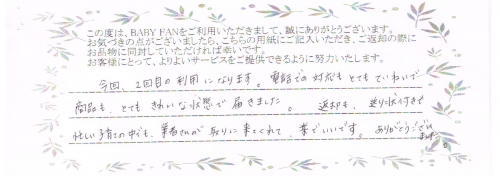 この度は、BABY FANをご利用いただきまして、誠にありがとうございます。
お気づきの点がございましたら、こちらの用紙にご記入いただき、ご返却の際に
お品物に同封していただければ幸いです。
お客様にとって、よりよいサービスをご提供できるように努力いたします。
今回、2回目の利用になります。電話での対応もとてもていねいで
商品も、とてもきれいな状態で届きました。返却も、送り状付きで
忙しい子育ての中でも、業者さんが取りに来てくれて、楽でいいです。ありがとうござい
ます。